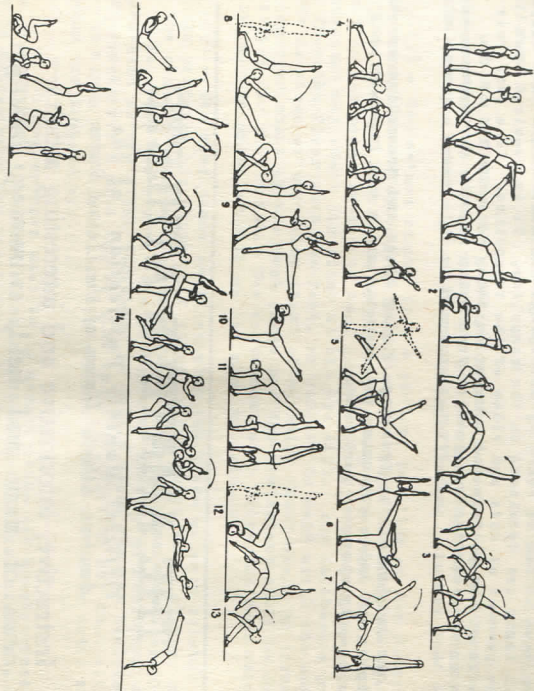 2 3
4 5 6 7
8 9 10 11 12 13
14